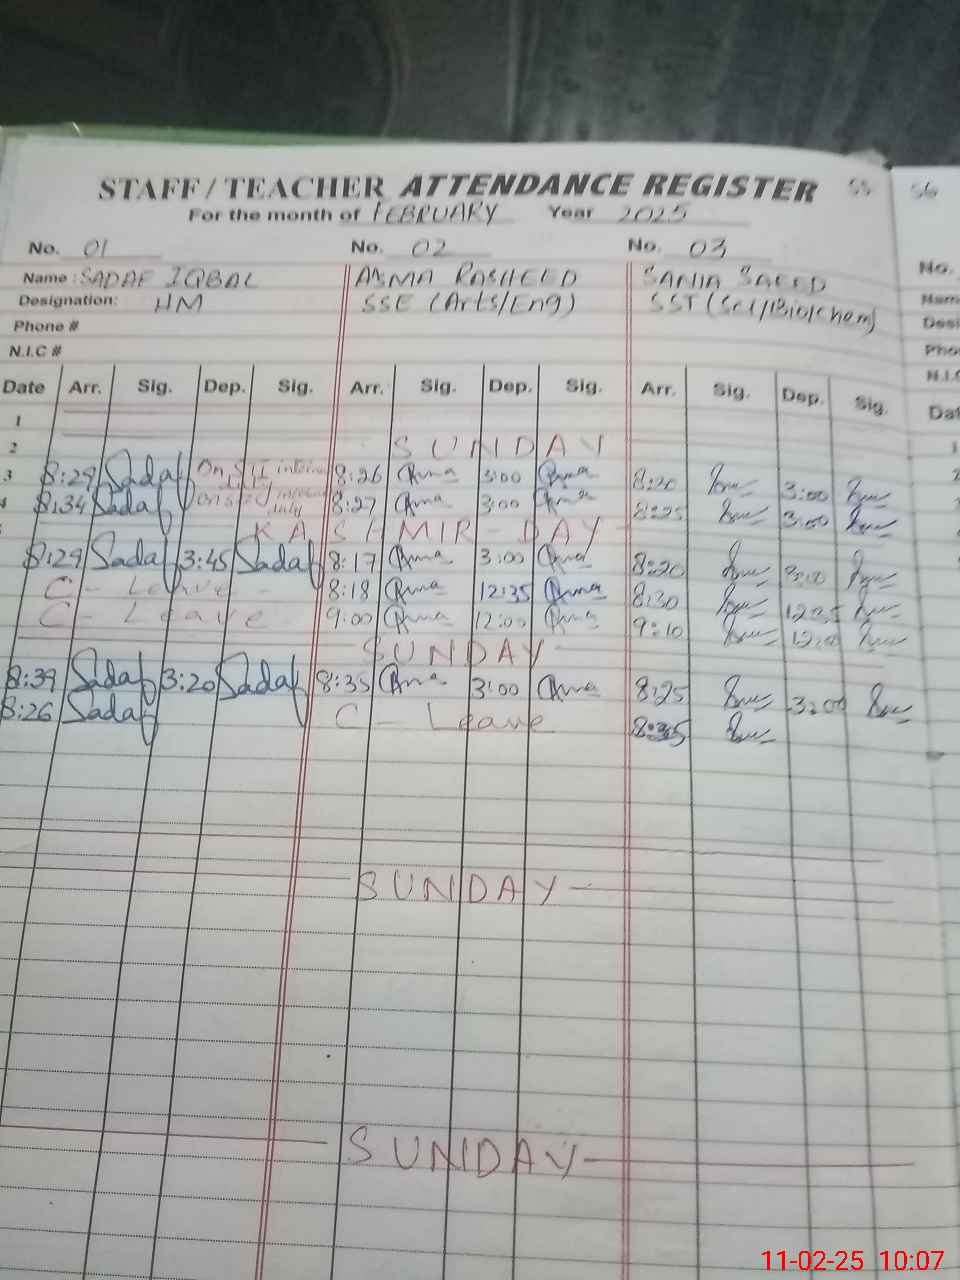 STAFF / TEACHER ATTENDANCE REGISTER 55 56
For the month of FEBRUARY Year 2025
No. 01 No. 02 No. 03 No.
Name: SADAF IQBAL ASMA RASHEED SANIA SAEED
Designation: HM SSE (Arts/Eng) SST (Sci/Bio/Chem)
Phone #
N.I.C #
Date Arr. Sig. Dep. Sig. Arr. Sig. Dep. Sig. Arr. Sig. Dep. Sig.
1
2 SUNDAY
3 8:29 Sadaf 8:26 Asma 3:00 Asma 8:20 3:00
4 8:34 Sadaf 8:27 Asma 3:00 Asma 8:25 3:00
KASHMIR-DAY
8:29 Sadaf 3:45 Sadaf 8:17 Asma 3:00 Asma 8:20
C-Leave- 8:18 Asma 12:35 Asma 8:30 12:35
C-Leave 9:00 Asma 12:00 Asma 9:10 12:00
SUNDAY-
8:39 Sadaf 3:20 Sadaf 8:35 Asma 3:00 Asma 8:25 3:00
8:26 Sadaf C-Leave 8:35
SUNDAY-
SUNDAY-
11-02-25 10:07